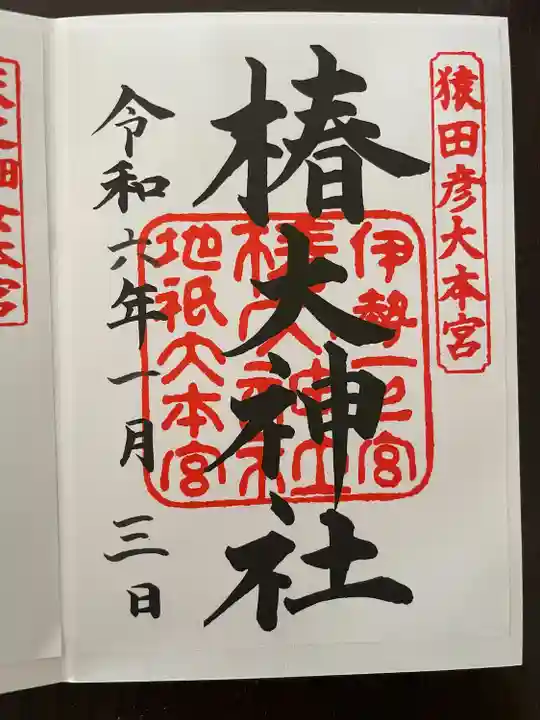 猿田彦大本宮
椿大神社
伊勢一之宮
椿大神社
地祇大本宮
令和六年一月三日
本宮